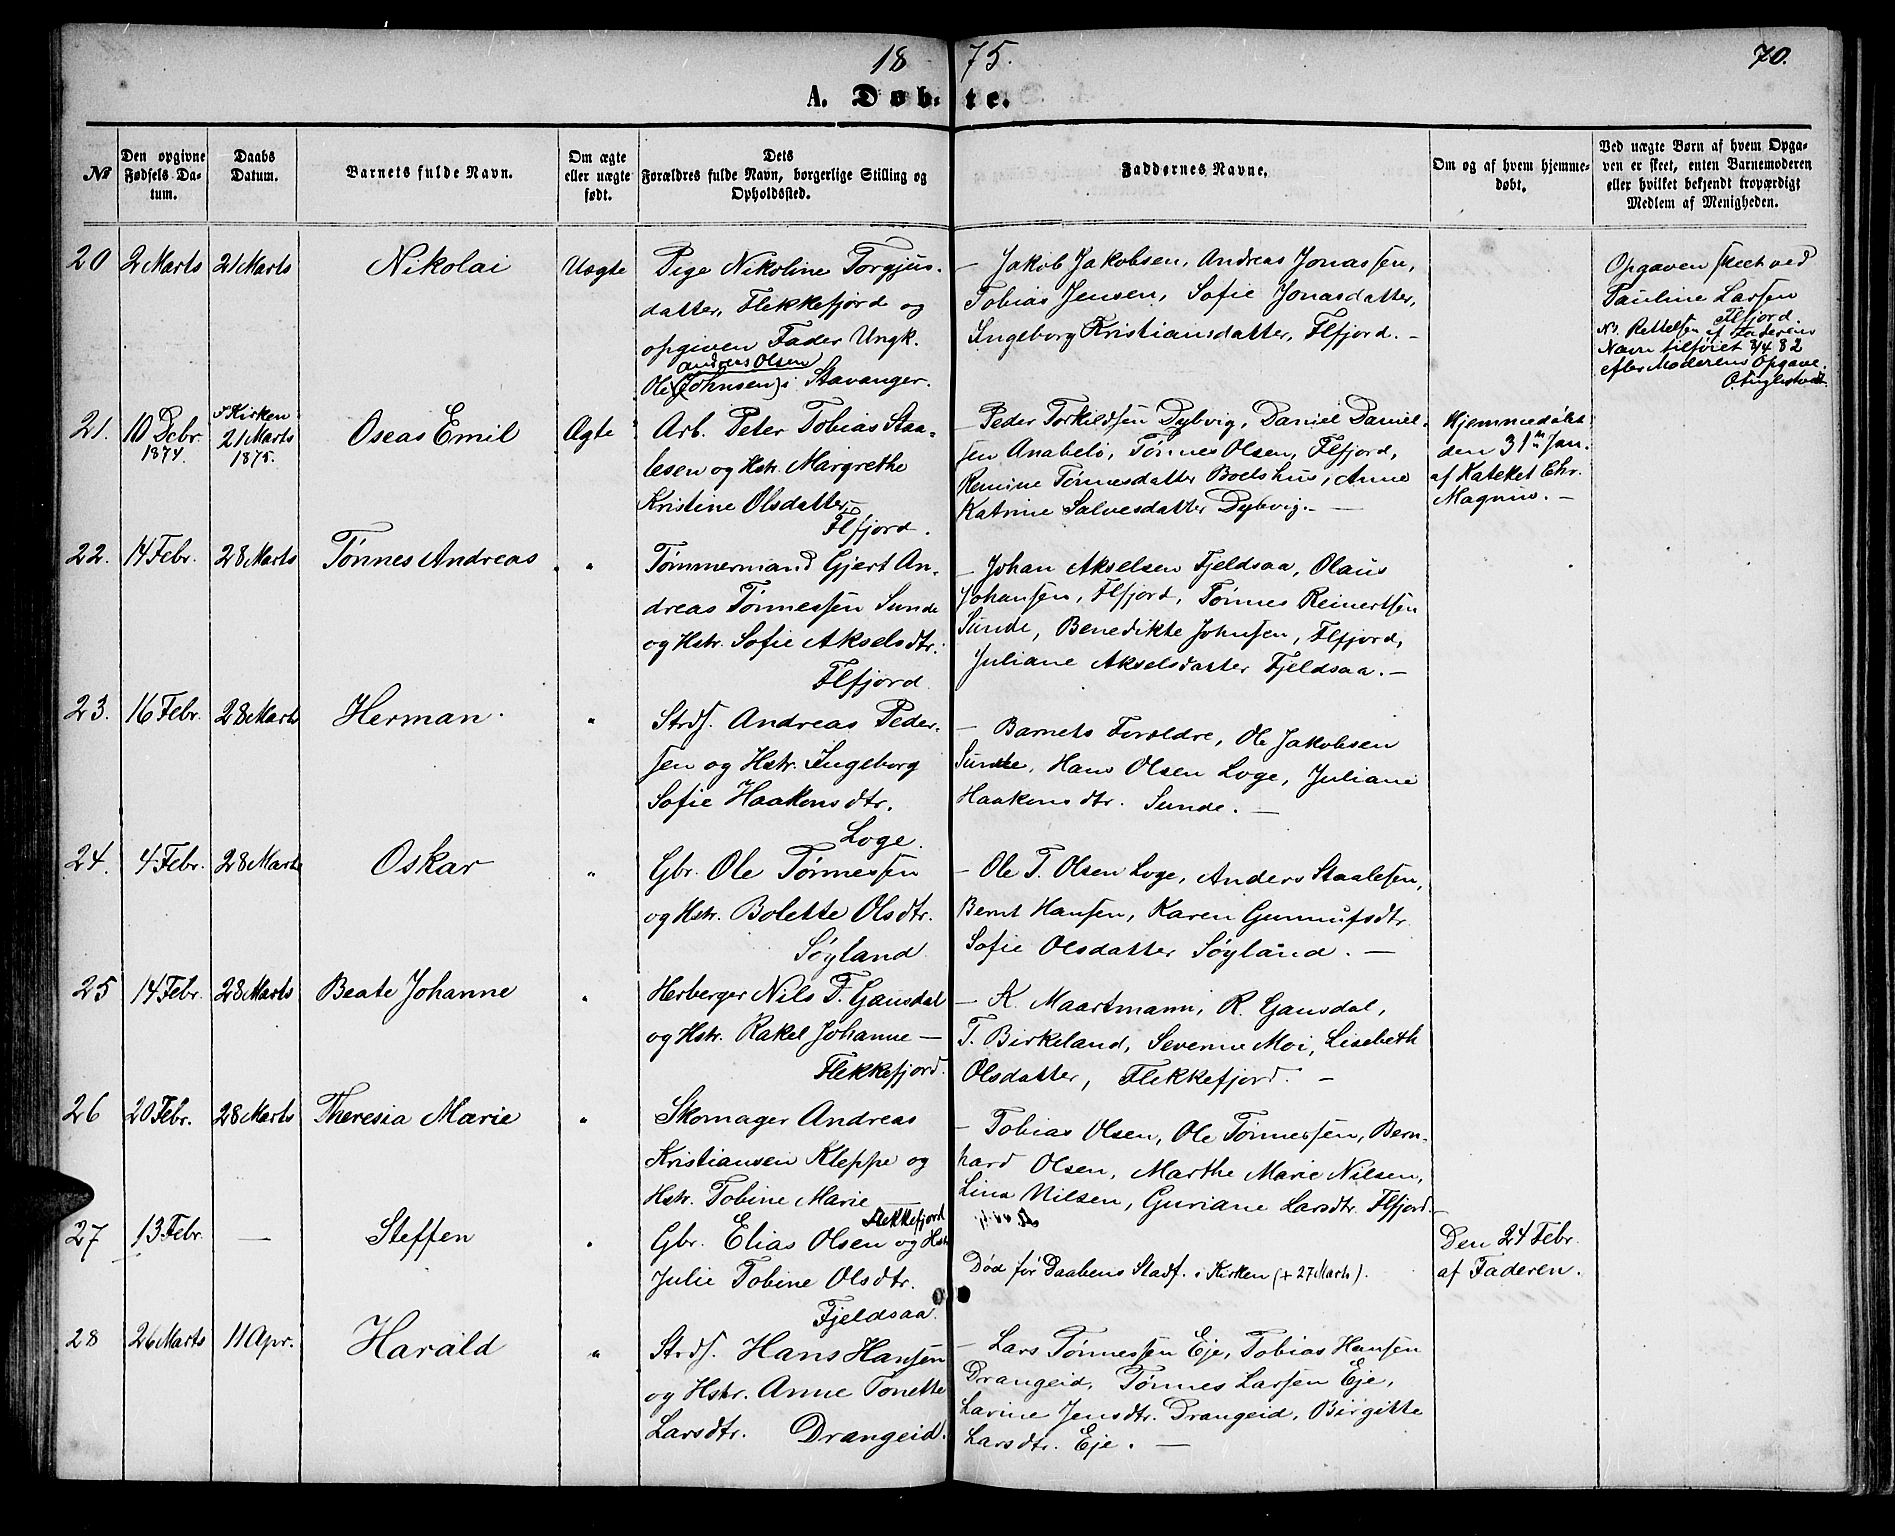 1875.
70.
A. Døbte.
No
Den opgivne Fødsels Datum.
Daabs Datum.
Barnets fulde Navn.
Om ægte eller uægte født.
Dets Forældres fulde Navn, borgerlige Stilling og Opholdssted.
Faddernes Navne.
Om og af hvem hjemmedøbt.
Ved uægte Børn af hvem Opgaven er skeet, enten Barnemoderen eller hvilket bekjendt troværdigt Medlem af Menigheden.
20 2 Marts 21 Marts Nikolai Uægte
Pige Nikoline Torgjus-
datter, Flekkefjord og
opgiven Fader Ungk.
Andreas Olsen
Ole (Johnsen) i Stavanger.
— Jakob Jakobsen, Andreas Jonassen,
Tobias Jensen, Sofie Jonasdatter,
Ingeborg Kristiansdatter, Flfjord. —
Opgaven skeet ved
Pauline Larsen
Flfjord.
NB. Rettelsen af Faderens
Navn tilføiet 3/4 82
efter Moderens Opgave.
21. 10 Dcbr. 1874. I Kirken 21 Marts 1875. Oseas Emil Ægte
Arb. Peter Tobias Staa-
lesen og Hstr. Margrethe
Kristine Olsdatter
Flfjord.
— Peder Torkildsen Dybvig, Daniel Daniel-
sen Anabelø, Tønnes Olsen, Flfjord,
Remine Tønnesdatter Boelshus, Anne
Katrine Salvesdatter Dybvig. —
Hjemmedøbt
den 31te Jan.
af Kateket Chr.
Magnus. —
22. 14 Febr. 28 Marts Tønnes Andreas "
Tømmermand Gjert An-
dreas Tønnessen Sunde
og Hstr. Sofie Akselsdtr.
Flfjord.
— Johan Akselsen Fjeldsaa, Olaus
Johansen, Flfjord, Tønnes Reinertsen
Sunde, Benedikte Johnsen, Flfjord,
Juliane Akselsdatter Fjeldsaa. —
23. 16 Febr. 28 Marts Herman. "
Strds. Andreas Peder-
sen og Hstr. Ingeborg
Sofie Haakonsdtr.
Loge.
— Barnets Forældre, Ole Jakobsen
Sunde, Hans Olsen Loge, Juliane
Haakonsdtr. Sunde. —
24. 4 Febr. 28 Marts Oskar "
Gbr. Ole Tønnessen
og Hstr. Bolette Olsdtr.
Søyland
— Ole T. Olsen Loge, Anders Staalesen,
Bernt Hansen, Karen Gunnufsdtr
Sofie Olsdatter Søyland. —
25 14 Febr. 28 Marts Beate Johanne "
Herberger Nils T. Gausdal
og Hstr. Rakel Johanne —
Flekkefjord.
— K. Maartmann, R. Gausdal,
T. Birkeland, Severine Moi, Lisebeth
Olsdatter, Flekkefjord. —
26 20 Febr. 28 Marts Theresia Marie "
Skomager Andreas
Kristiansen Kleppe og
Hstr. Tobine Marie
Flekkefjord
— Tobias Olsen, Ole Tønnessen, Bern-
hard Olsen, Marthe Marie Nilsen,
Lina Nilsen, Guriane Larsdtr. Flfjord. —
27 13 Febr. — Steffen "
Gbr. Elias Olsen og Hstr
Julie Tobine Olsdtr.
Fjeldsaa
Død før Daabens Stadf. i Kirken (+ 27 Marts).
Den 24 Febr.
af Faderen.
28 26 Marts 11 Apr. Harald "
Strds. Hans Hansen
og Hstr. Anne Tonette
Larsdtr. Drangeid.
— Lars Tønnessen Eje, Tobias Hansen
Drangeid, Tønnes Larsen Eje,
Larine Jensdtr. Drangeid, Birgitte
Larsdtr. Eje. —